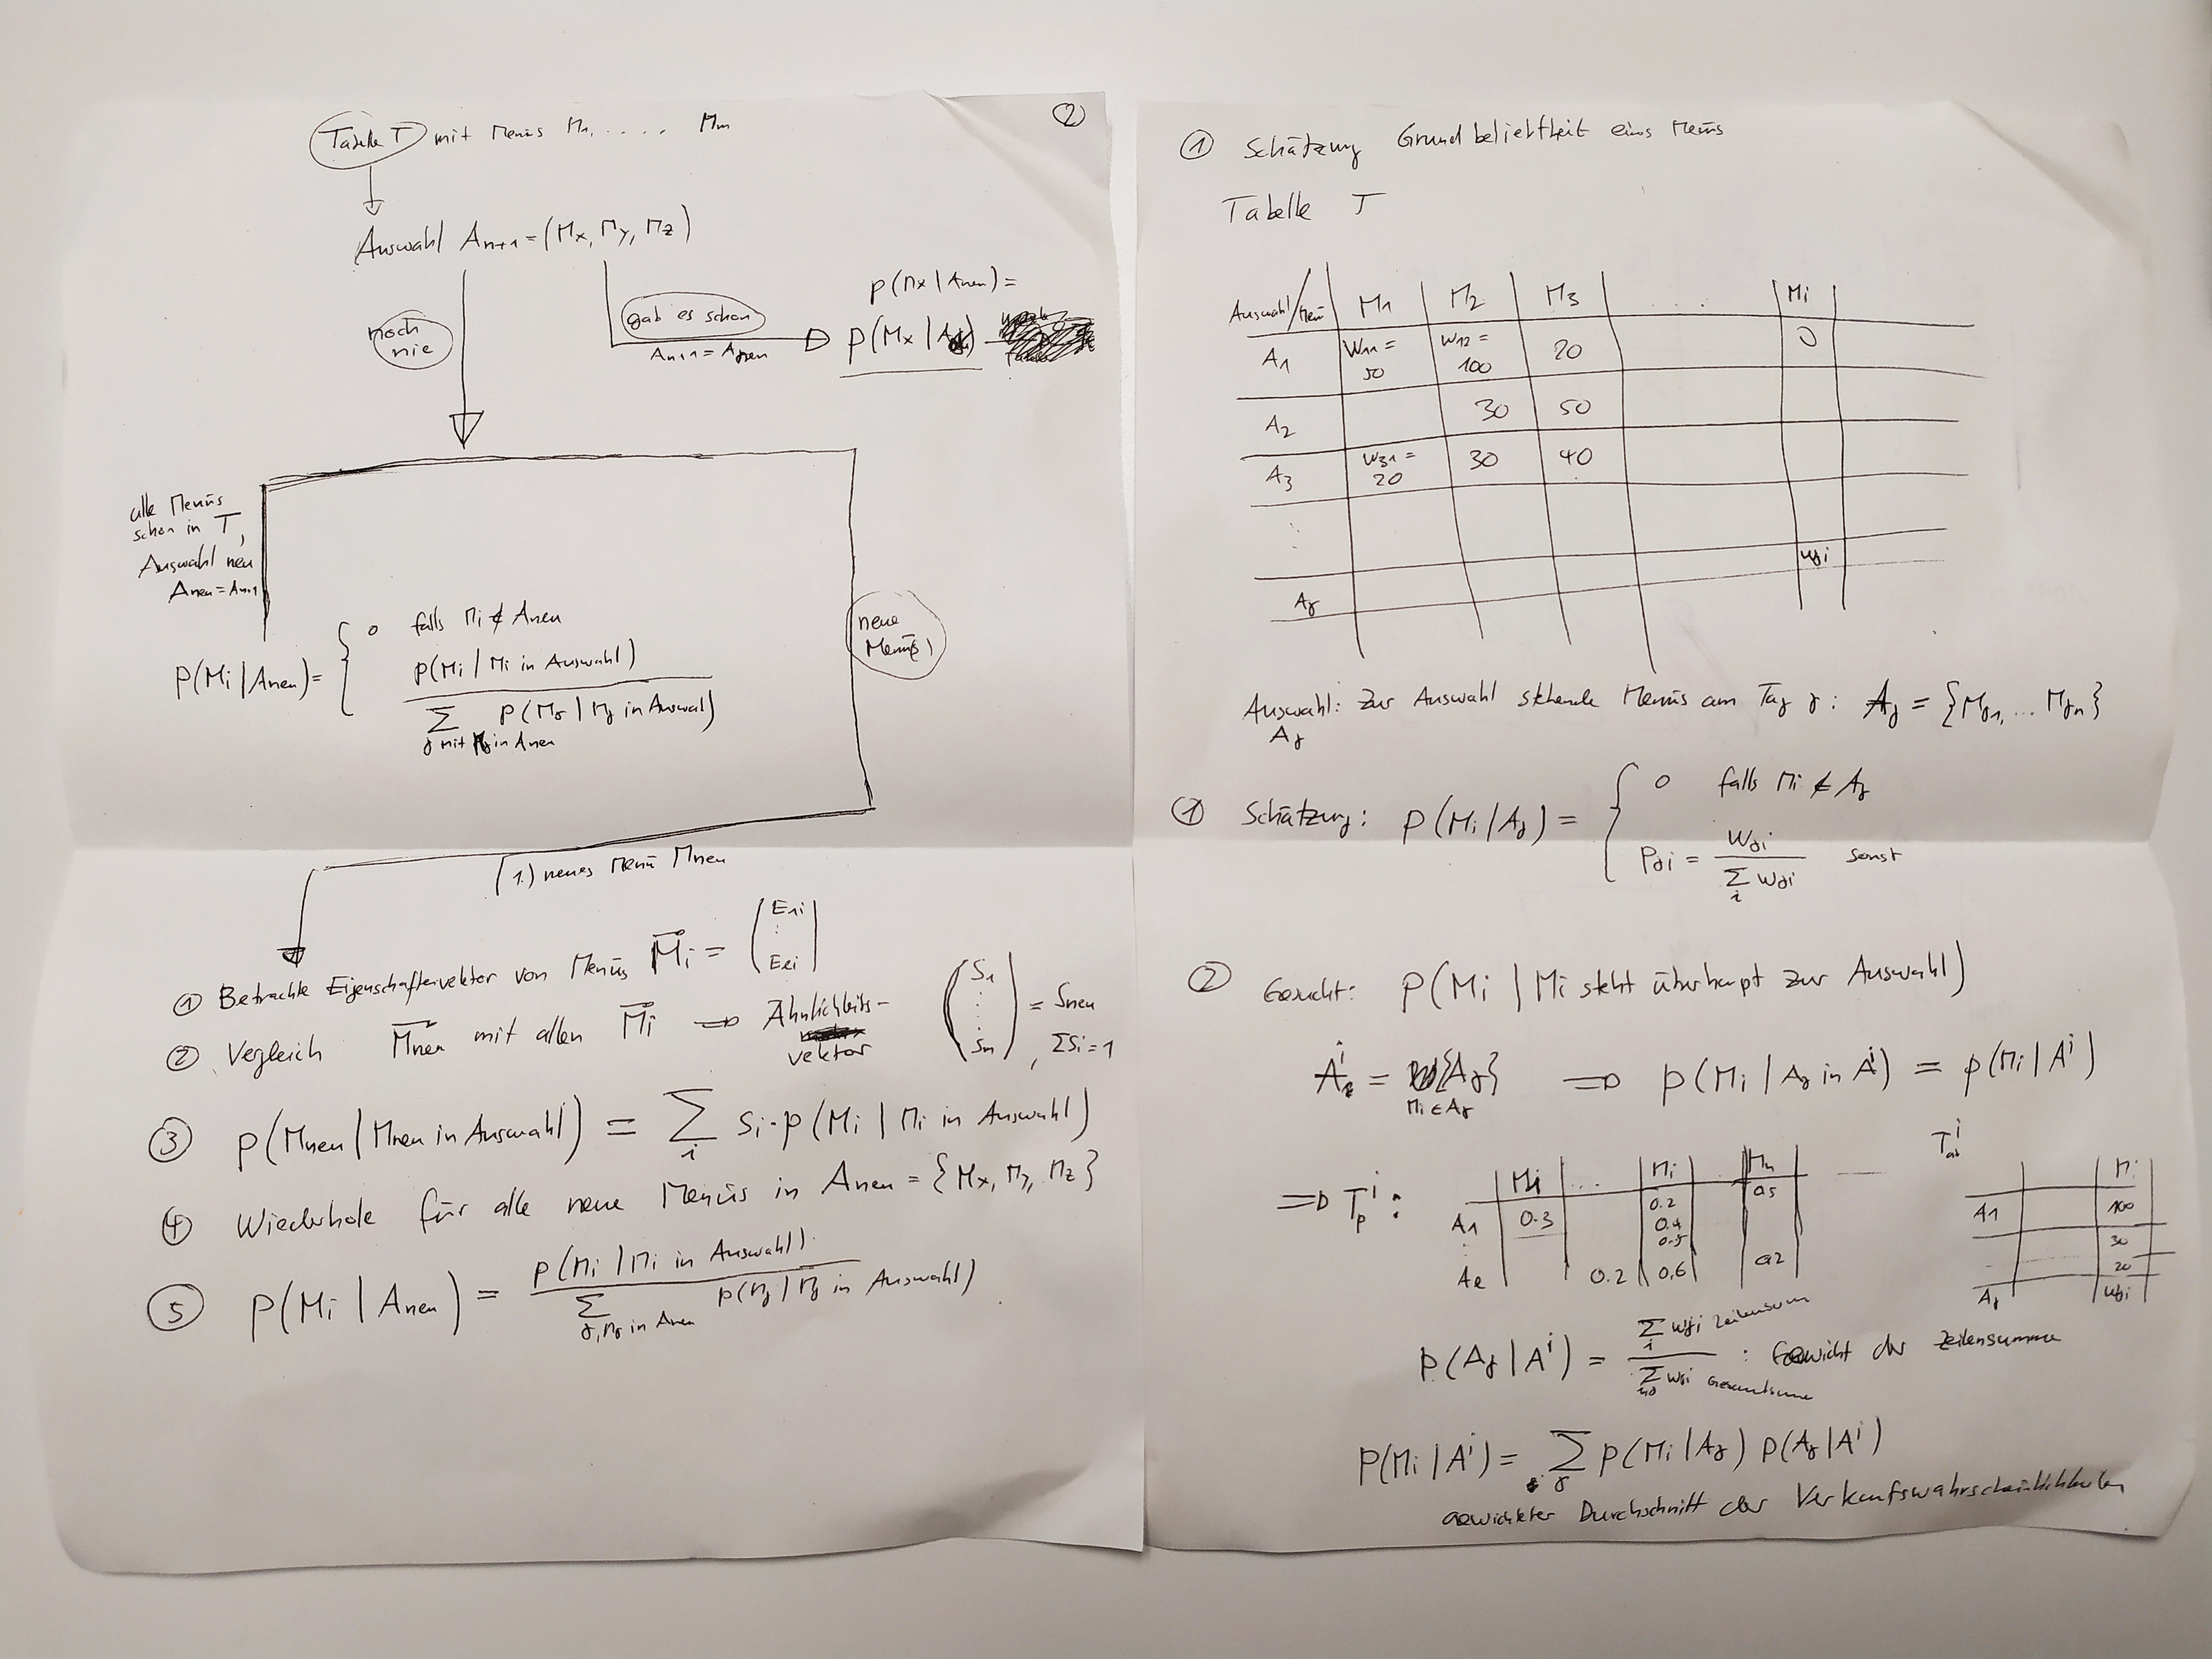 ②
Tabelle T mit Menüs M1, . . . . . Mm
Auswahl An+1 = (Mx, My, Mz)
noch nie
gab es schon
An+1 = Aj
p(Mx | Aneu) =
p(Mx | Aj)
alle Menüs
schon in T,
Auswahl neu
Aneu = An+1
neue
Menü(s)
p(Mi | Aneu) = { 0 falls Mi ∉ Aneu
p(Mi | Mi in Auswahl)
Σ p(Mj | Mj in Auswal)
j mit Mj in Aneu
(1.) neues Menü Mneu
① Betrachte Eigenschaftsvektor von Menüs Mi = (E1i : Eli)
② Vergleich Mneu mit allen Mi ⇒ Ähnlichkeits-
vektor
(S1 : Sm) = Sneu
, ΣSi = 1
③ p(Mneu | Mneu in Auswahl) = Σi Si · p(Mi | Mi in Auswahl)
④ Wiederhole für alle neue Menüs in Aneu = {Mx, My, Mz}
⑤ p(Mi | Aneu) = p(Mi | Mi in Auswahl)
Σ p(Mj | Mj in Auswahl)
j, Mj in Aneu
① Schätzung Grundbeliebtheit eines Menüs
Tabelle T
Auswahl/Menü M1 M2 M3 . . . . Mi
A1 W11 = 50 W12 = 100 20 0
A2 30 50
A3 W31 = 20 30 40
:
wji
Aj
Auswahl: Zur Auswahl stehende Menüs am Tag j: Aj = {Mj1, ... Mjn}
Aj
① Schätzung: p(Mi | Aj) = { 0 falls Mi ∉ Aj
Pji = wji / Σi wji sonst
② Gesucht: p(Mi | Mi steht überhaupt zur Auswahl)
Ai = {Aj} ⇒ p(Mi | Aj in Ai) = p(Mi | Ai)
Mi ∈ Aj
⇒ Tpi :
... Mi Mn
A1 0.3 0.2
0.4
0.5
:
Ae 0.2 0.6
Mi
A1 100
30
20
Aj wji
p(Aj | Ai) = Σi wji Zeilensum / Σ wji Gesamtsumme : Gewicht der Zeilensumme
P(Mi | Ai) = Σj p(Mi | Aj) p(Aj | Ai)
gewichteter Durchschnitt der Verkaufswahrscheinlichkeiten